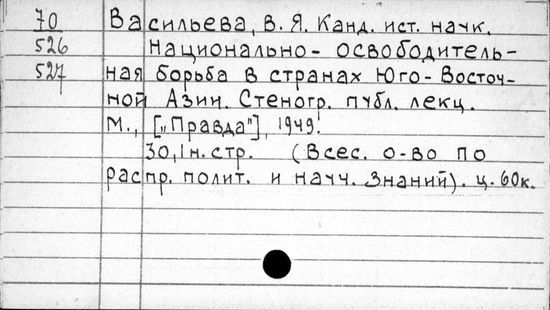 70 Васильева, В. Я. Канд. ист. наук.
526 Национально- освободитель-
527 ная борьба в странах Юго- Восточ-
ной Азии. Стеногр. публ. лекц.
М., [„Правда"], 1949.
30,1 н. стр. (Всес. о-во по
распр. полит. и науч. знаний). ц. 60к.